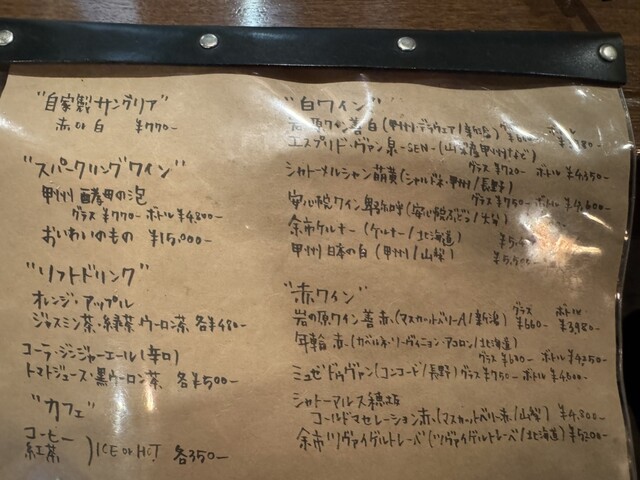 "自家製サングリア"
赤or白 ¥770-
"スパークリングワイン"
甲州 酵母の泡
グラス ¥770- ボトル ¥4,800-
おいわいのもの ¥15,000-
"ソフトドリンク"
オレンジ・アップル
ジャスミン茶・緑茶・ウーロン茶 各¥480-
コーラ・ジンジャーエール(辛口)
トマトジュース・黒ウーロン茶 各¥500-
"カフェ"
コーヒー
紅茶
ICE or HOT 各350-
"白ワイン"
岩の原ワイン 善 白(甲州・デラウェア/新潟) グラス
エスプリ・ド・ヴァン 泉-SEN-(山梨産甲州など)
グラス ¥720- ボトル ¥4,350-
シャトーメルシャン 萌黄(シャルドネ・甲州/長野)
グラス ¥750- ボトル ¥4,600-
安心院ワイン 卑弥呼(安心院ぶどう/大分)
余市ケルナー(ケルナー/北海道)
甲州 日本の白(甲州/山梨)
"赤ワイン"
グラス ボトル
岩の原ワイン 善 赤(マスカットベリーA/新潟) ¥660- ¥3980-
年輪 赤(カベルネ・ソーヴィニヨン・アコロン/北海道)
グラス ボトル
ミュゼドゥヴァン(コンコード/長野) グラス ¥750- ボトル ¥4,600-
シャトーマルス 穂坂
コールドマセレーション赤(マスカットベリー赤/山梨) ¥4,800-
余市ツヴァイゲルトレーベ(ツヴァイゲルトレーベ/北海道) ¥5,200-